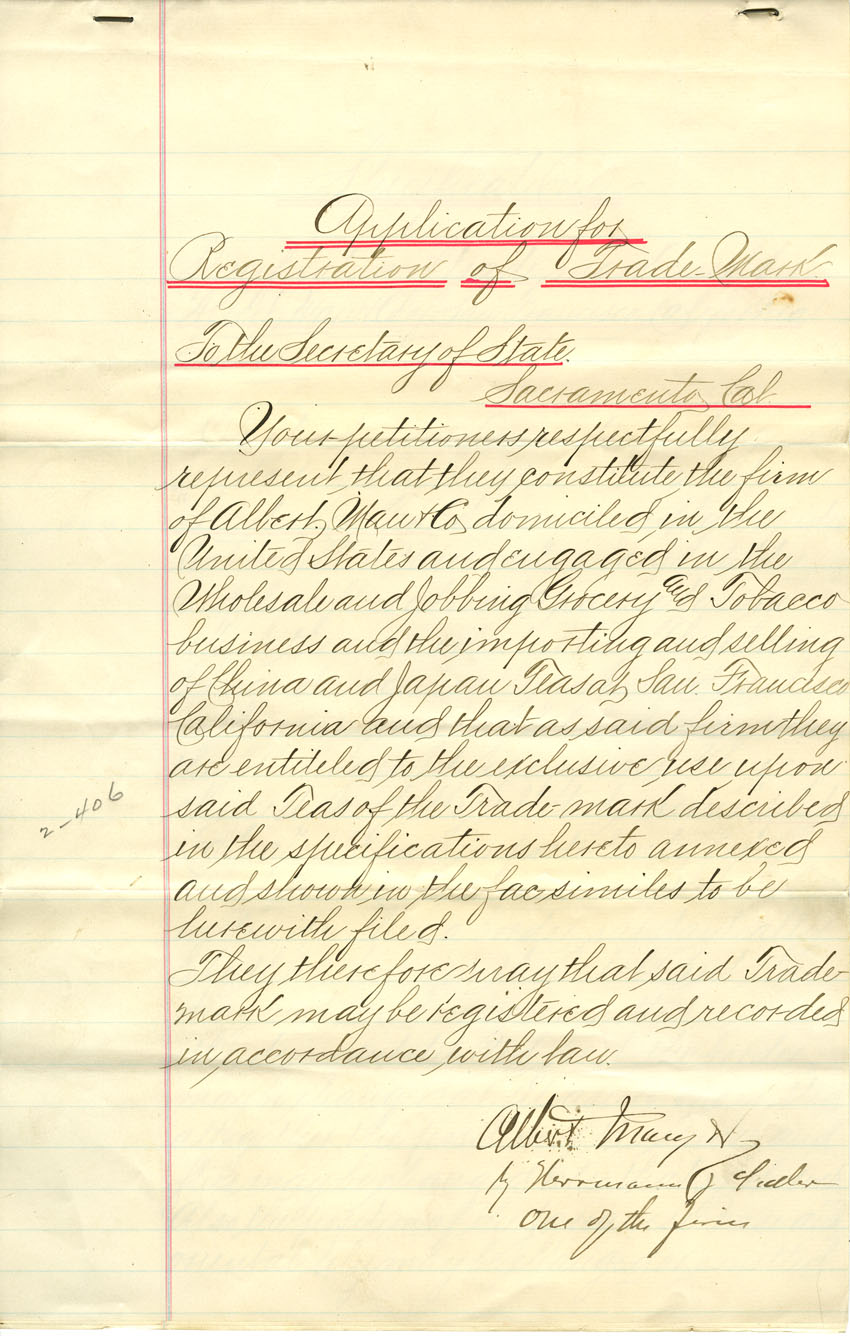 Application for
Registration of Trade-Mark
To the Secretary of State.
Sacramento, Cal
Your petitioners respectfully
represent that they constitute the firm
of Albert, Mau & Co, domiciled in the
United States and engaged in the
Wholesale and Jobbing Grocery and Tobacco
business and the importing and selling
of China and Japan Teas at San Francisco
California and that as said firm they
are entiteled to the exclusive use upon
said Teas of the Trade-mark described
in the specifications hereto annexed
and shown in the facsimiles to be
herewith filed.
They therefore pray that said Trade-
mark may be registered and recorded
in accordance with law.
2-406
Albert Mau &
by Herrmann
One of the firm